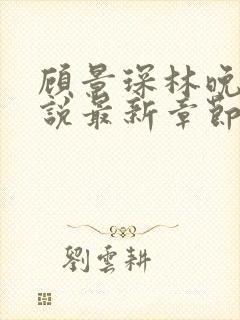 顾景琛林晚
說最新章節
劉雲耕